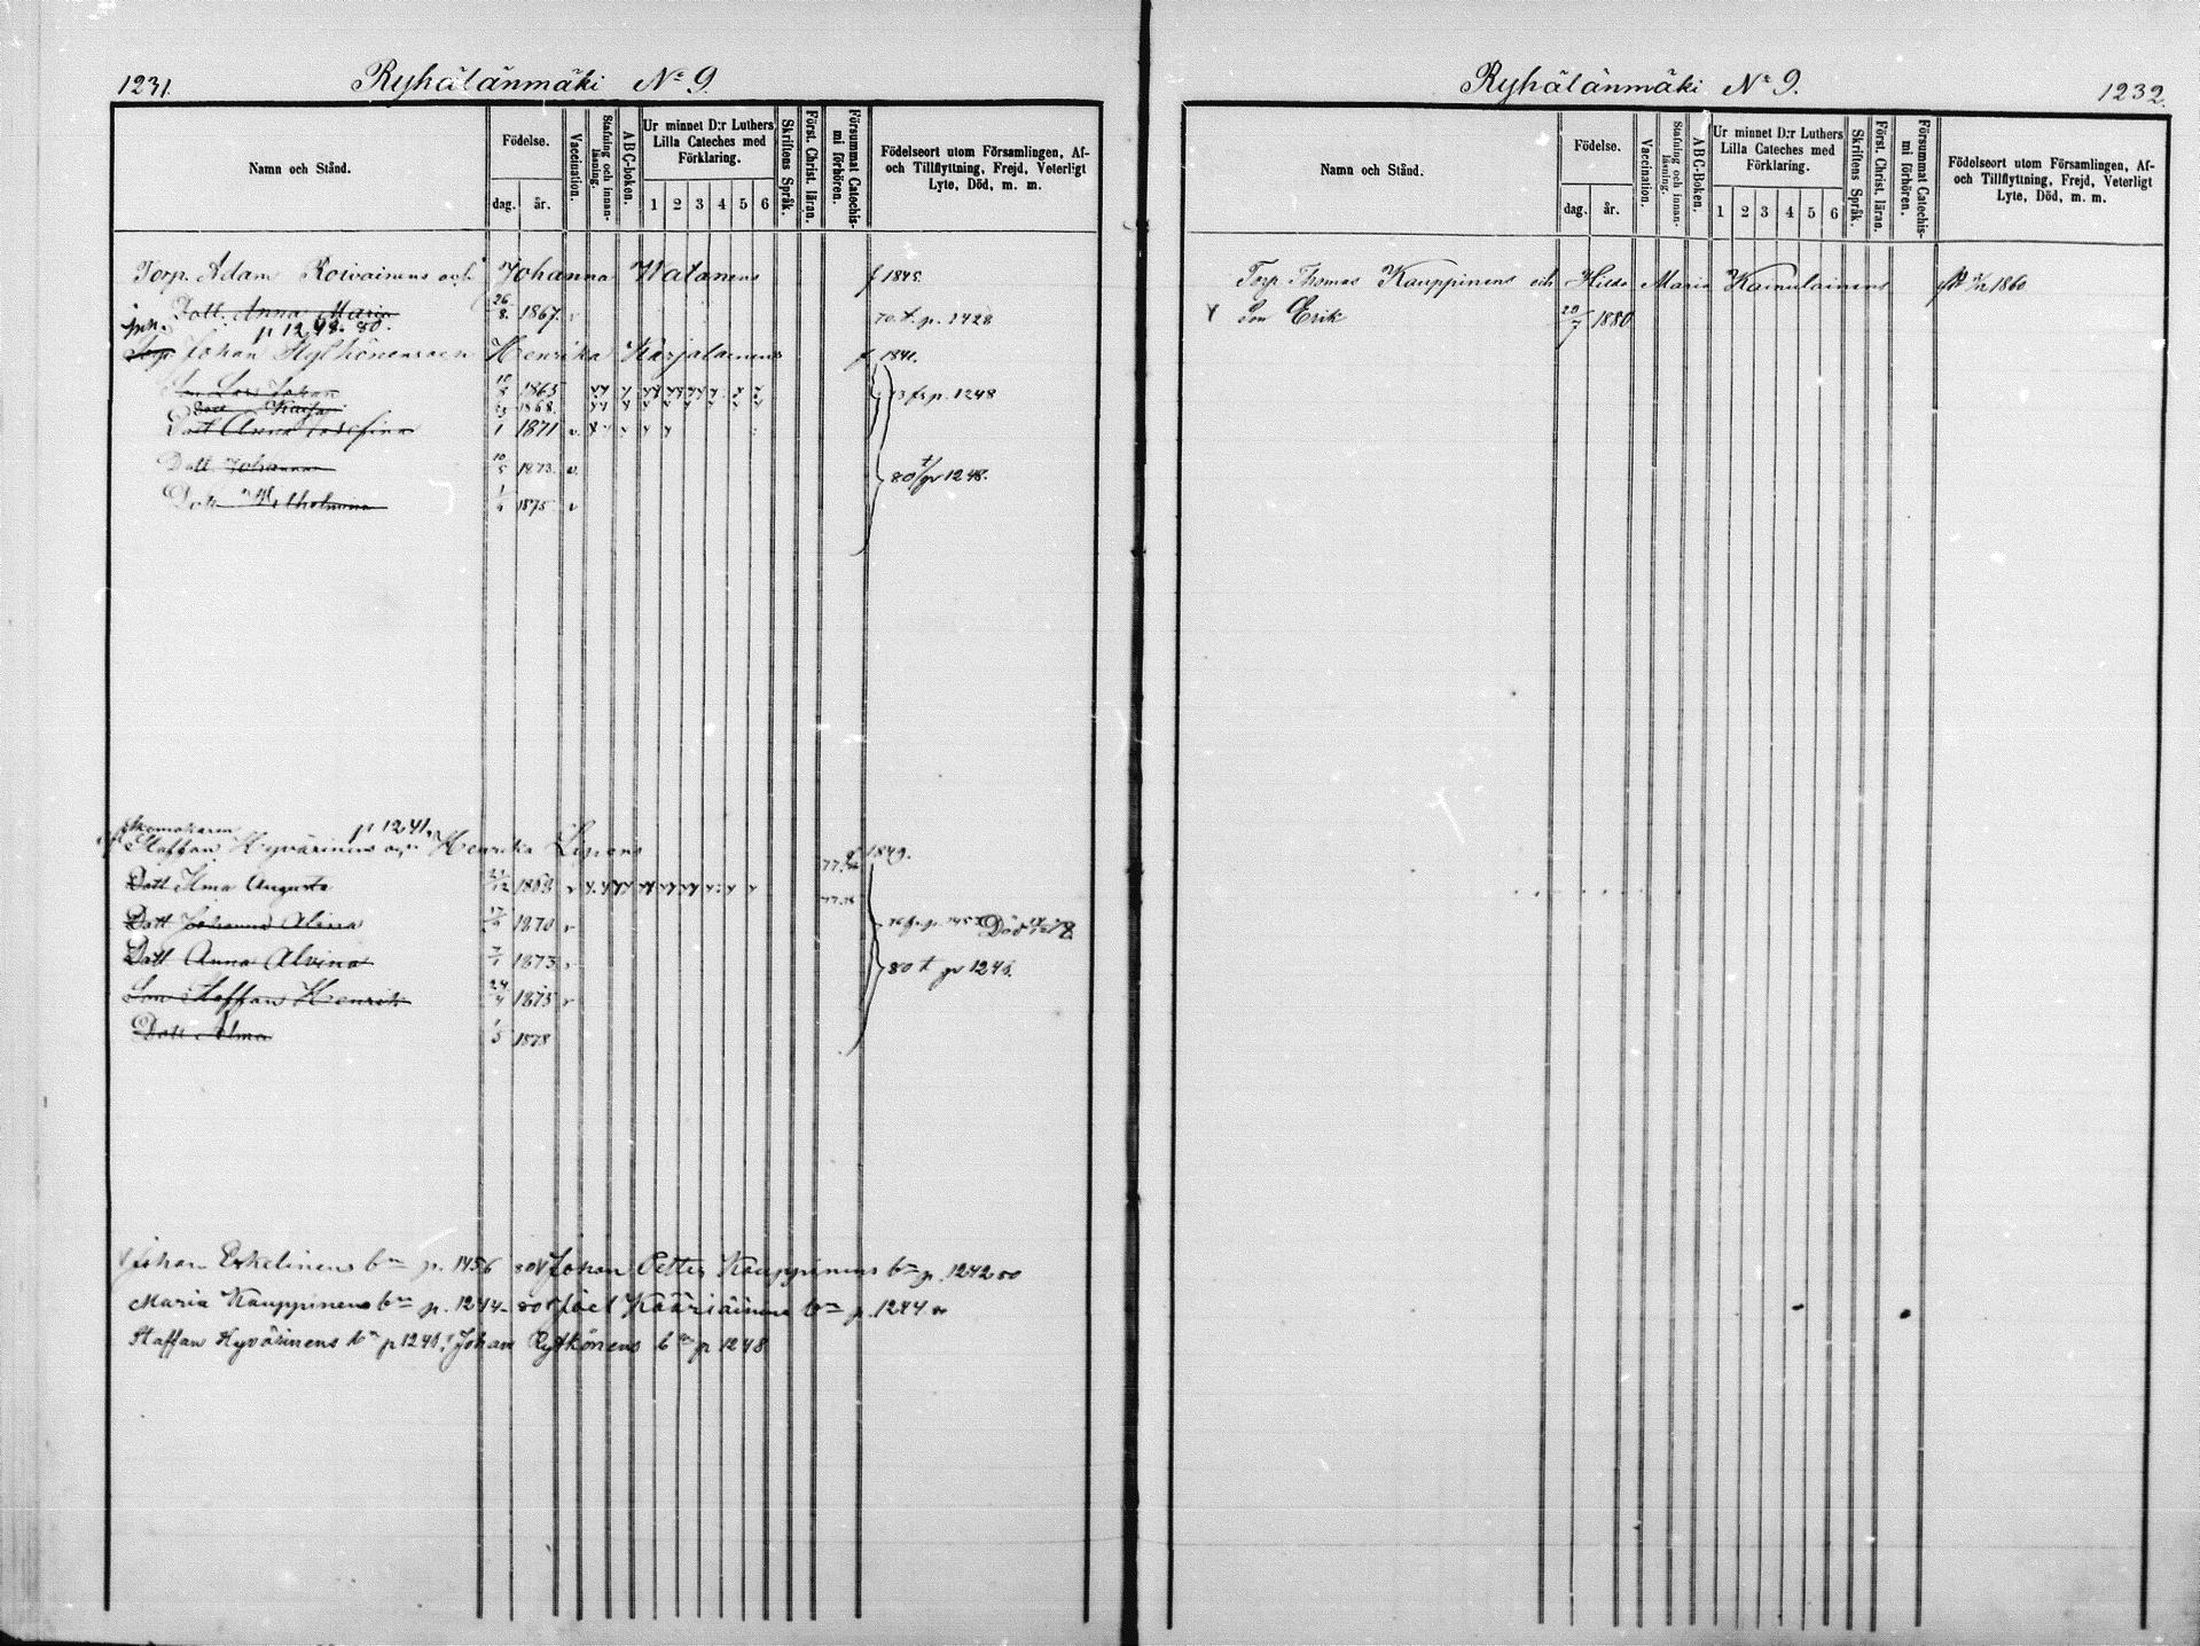 1231.
Ryhälänmäki No 9.
Namn och Stånd.
Födelse.
dag.
år.
Vaccination.
Stafning och innan-läsning.
ABC-boken.
Ur minnet D:r Luthers
Lilla Cateches med
Förklaring.
1 2 3 4 5 6
Skriftens Språk.
Först. Christ. läran.
Försummat Catechis-
mi förhören.
Födelseort utom Församlingen, Af-
och Tillflyttning, Frejd, Veterligt
Lyte, Död, m. m.
Torp. Adam Roivainens och Johanna Watanens f 1845.
Dott. Anna Maria 26/8 1867. 70. t. p. 1428
p 1248. 80.
Johan Henrika Karjalainens f 1841.
Johan 1865 p. 1248
Dott Kaisa 1868.
Dott Anna Josefina 1 1871 v.
Dott Johanna 10/5 1873. v.
80 t/p 1248.
Dott Wilhelmina 1875 v
p 1241.
Staffan Hyvärinens och Henrika 1849.
Dott Ilma Augusta 1869 v
Dott Johanna Alina 1870 v Död
Dott Anna Alvina 1873 v
80 t p 1246.
Son Staffan Henrik 24/4 1875 v
Dott Alma 1878
Johan Eskelinens bn p. 1456 80 Johan Petter Kauppinens bn p. 1242 80
Maria Kauppinens bn p. 1244 80 Joel Kääriäinens bn p. 1244
Staffan Hyvärinens bn p 1246. Johan Rytkönens bn p 1248
Ryhälänmäki No 9.
1232.
Namn och Stånd.
Födelse.
dag.
år.
Vaccination.
Stafning och innan-läsning.
ABC-Boken.
Ur minnet D:r Luthers
Lilla Cateches med
Förklaring.
1 2 3 4 5 6
Skriftens Språk.
Först. Christ. läran.
Försummat Catechis-
mi förhören.
Födelseort utom Församlingen, Af-
och Tillflyttning, Frejd, Veterligt
Lyte, Död, m. m.
Torp Thomas Kauppinens och Hilda Maria Kainulainens 1860
Son Erik 20/7 1880